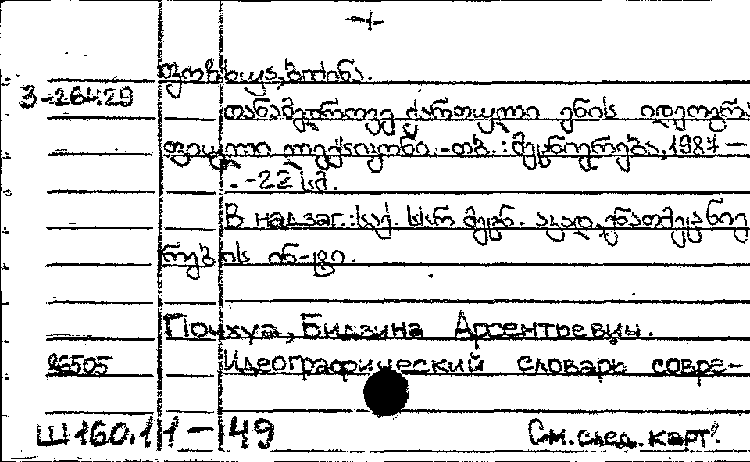 ფოჩხუა, ბიძინა.
3-26429
თანამედროვე ქართული ენის იდეოგრა
ფიული ლექსიკონი. -თბ. : მეცნიერება, 1987 —
. -22 სმ.
В надзаг.: საქ. სსრ მეცნ. აკად. ენათმეცნიე
რების ин-ტი.
Почхуа, Бидзина Арсентьевич.
26505 Идеографический словарь совре-
Ш160.11 — 49 См. след. карт.